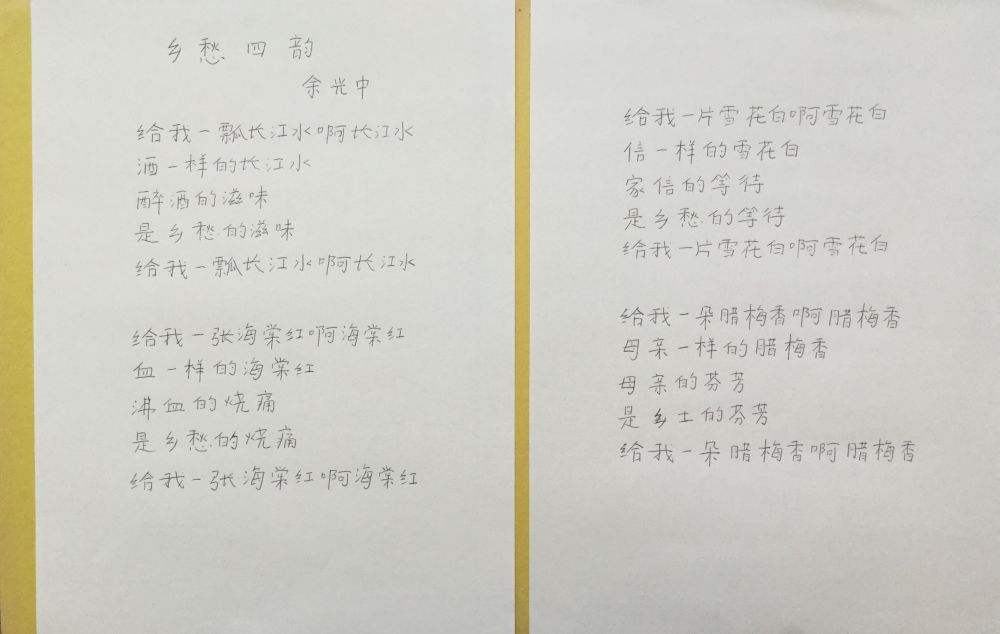 乡愁四韵
余光中
给我一瓢长江水啊长江水
酒一样的长江水
醉酒的滋味
是乡愁的滋味
给我一瓢长江水啊长江水
给我一张海棠红啊海棠红
血一样的海棠红
沸血的烧痛
是乡愁的烧痛
给我一张海棠红啊海棠红
给我一片雪花白啊雪花白
信一样的雪花白
家信的等待
是乡愁的等待
给我一片雪花白啊雪花白
给我一朵腊梅香啊腊梅香
母亲一样的腊梅香
母亲的芬芳
是乡土的芬芳
给我一朵腊梅香啊腊梅香